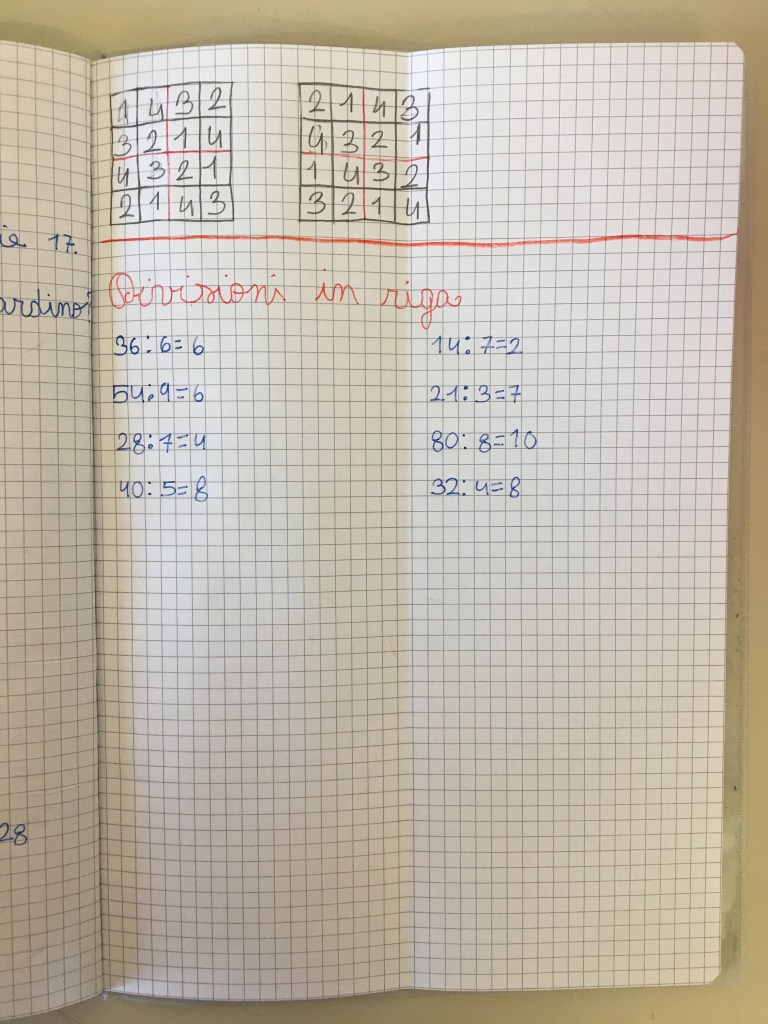 1 4 3 2
3 2 1 4
4 3 2 1
2 1 4 3
2 1 4 3
4 3 2 1
1 4 3 2
3 2 1 4
17.
Divisioni in riga
36:6=6
54:9=6
28:7=4
40:5=8
14:7=2
21:3=7
80:8=10
32:4=8
28